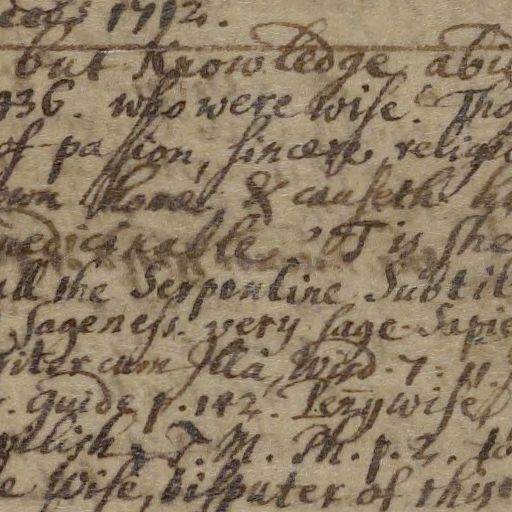 1712.
but Knowledge abi
936. who were wise. Tho
of passion, sincere, religio
own &
medicinable. 'T is she
all the Serpentine Subtil
Sageness. very sage Sapie
riter cum Illa, Wisd. 7: 11.
. Guide p. 142. Penywise,
T. M. Ph. p. 2. to
e Wise, disputer of this